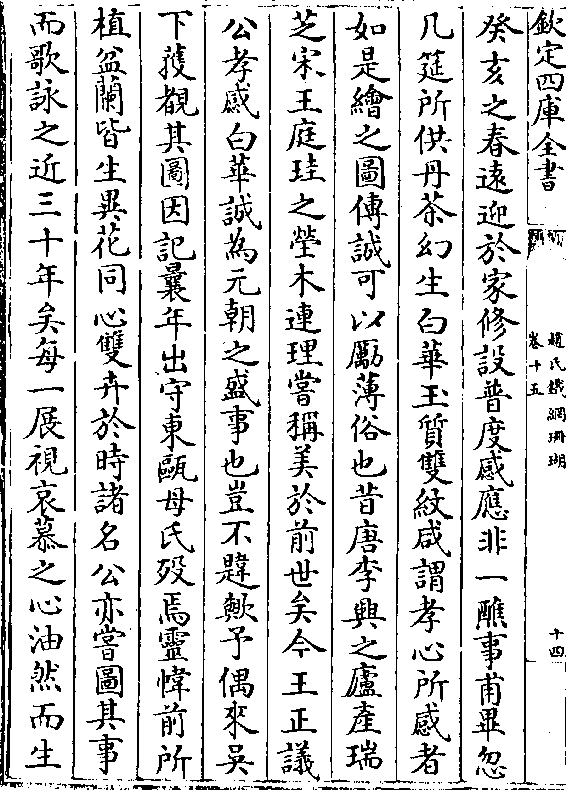 欽定四庫全書
趙氏鐵網珊瑚
卷十五
十四
癸亥之春遠迎於家修設普度感應非一醮事甫畢忽
几筵所供丹茶幻生白華玉質雙紋咸謂孝心所感者
如是繪之圖傳誠可以勵薄俗也昔唐李興之廬產瑞
芝宋王庭珪之塋木連理嘗稱美於前世矣今王正議
公孝感白華誠為元朝之盛事也豈不韙歟予偶來吳
下獲覩其圖因記曩年出守東甌母氏歿焉靈幃前所
植盆蘭皆生異花同心雙卉於時諸名公亦嘗圖其事
而歌詠之近三十年矣每一展視哀慕之心油然而生